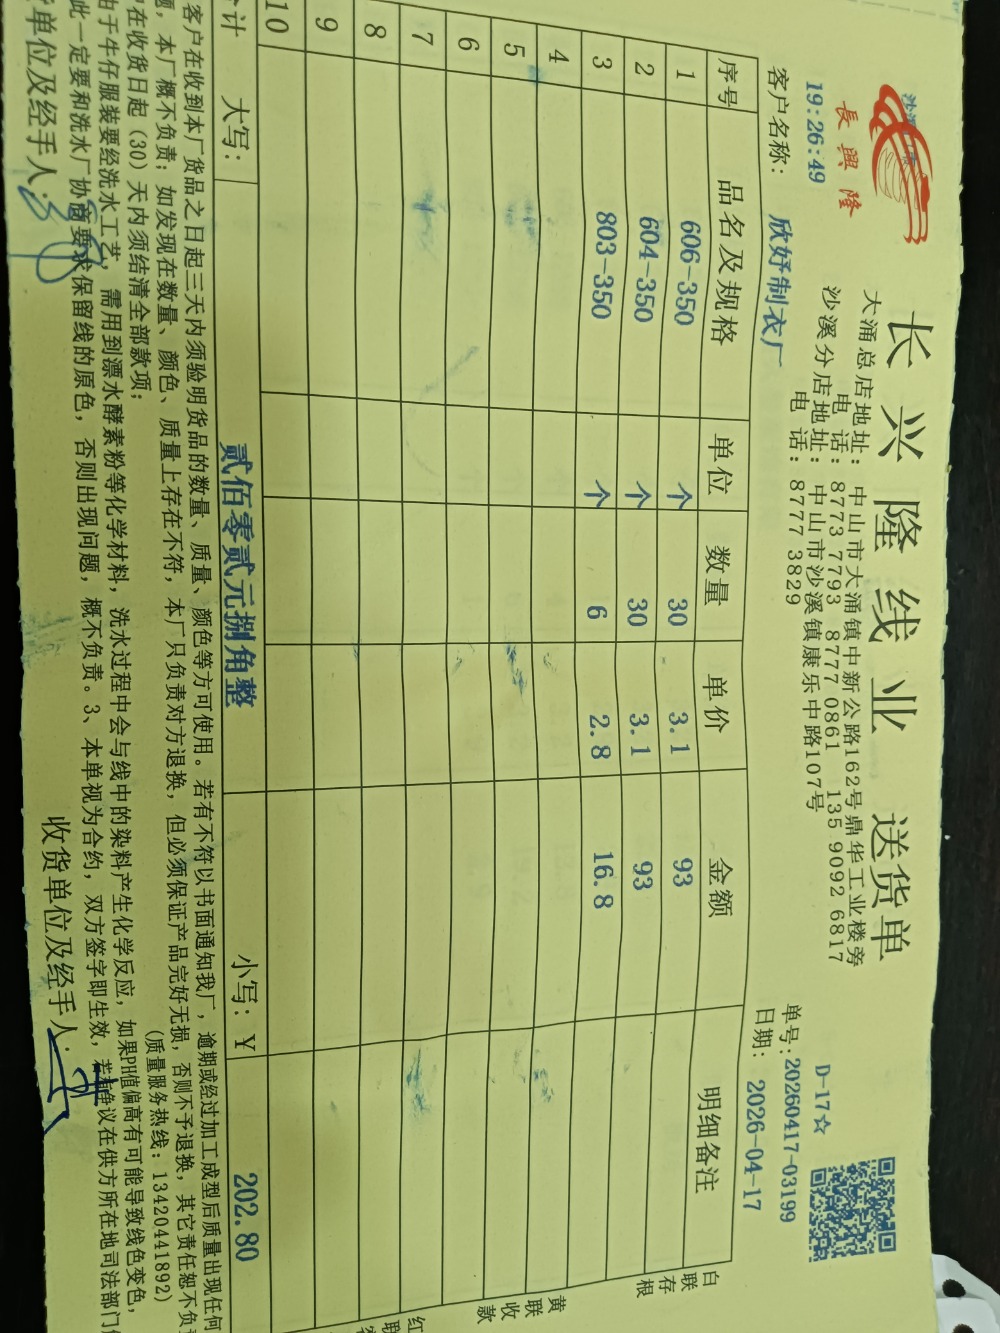 長興隆
19:26:49
长兴隆线业 送货单
大涌总店地址: 中山市大涌镇中新公路162号鼎华工业楼旁
电 话: 8773 7793 8777 0861 135 9092 6817
沙溪分店地址: 中山市沙溪镇康乐中路107号
电 话: 8777 3829
D-17☆
单号:20260417-03199
日期: 2026-04-17
客户名称: 欣妤制衣厂
序号 品名及规格 单位 数量 单价 金额 明细备注
1 606-350 个 30 3.1 93
2 604-350 个 30 3.1 93
3 803-350 个 6 2.8 16.8
4
5
6
7
8
9
10
计 大写: 贰佰零贰元捌角整 小写: ¥ 202.80
白联存根
黄联收款
红联
客户在收到本厂货品之日起三天内须验明货品的数量、质量、颜色等方可使用。若有不符以书面通知我厂,逾期或经过加工成型后质量出现任何
题,本厂概不负责;如发现在数量、颜色、质量上存在不符,本厂只负责对方退换,但必须保证产品完好无损,否则不予退换,其它责任恕不负
在收货日起(30)天内须结清全部款项;
(质量服务热线:13420441892)
由于牛仔服装要经洗水工艺,需用到漂水酵素粉等化学材料,洗水过程中会与线中的染料产生化学反应,如果PH值偏高有可能导致线色变色,
此一定要和洗水厂协商要求保留线的原色,否则出现问题,概不负责。3、本单视为合约,双方签字即生效,若有争议在供方所在地司法部门
货单位及经手人:
收货单位及经手人: